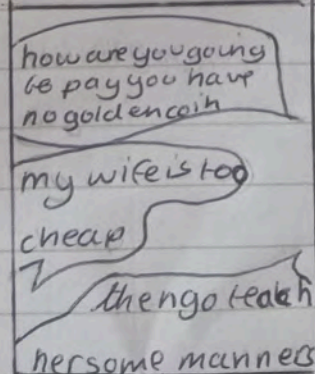 how are you going
be pay you have
no golden coin
my wife is too
cheap
then go teach
her some manners